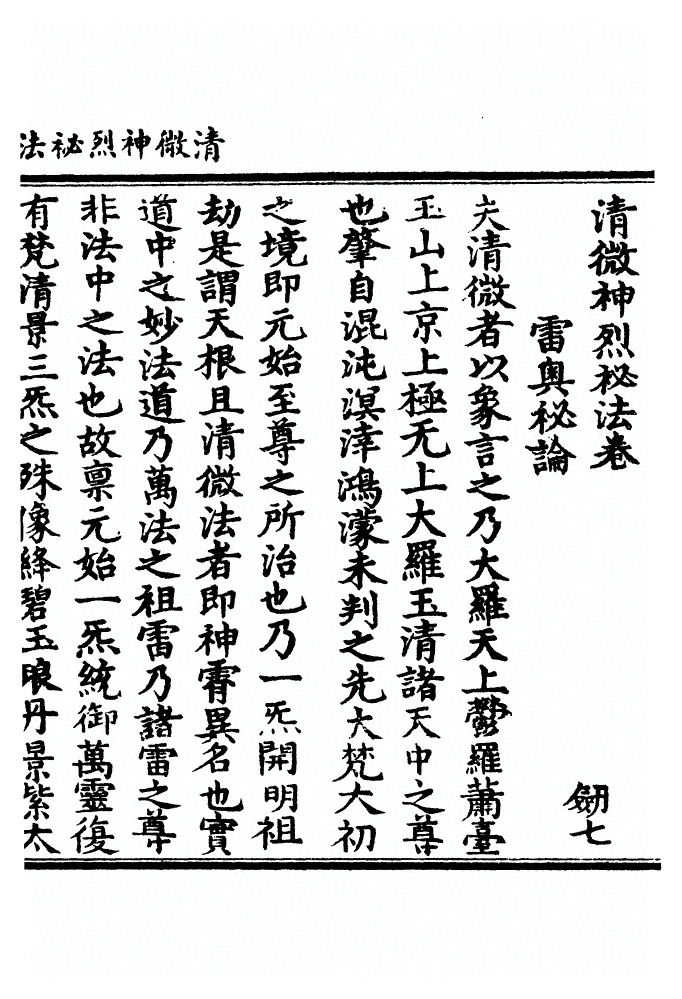 清微神烈祕法
清微神烈祕法卷
劒七
雷奧祕論
夫清微者以象言之乃大羅天上鬱羅蕭臺
玉山上京上極无上大羅玉清諸天中之尊
也肇自混沌溟涬鴻濛未判之先大梵大初
之境即元始至尊之所治也乃一炁開明祖
劫是謂天根且清微法者即神霄異名也實
道中之妙法道乃萬法之祖雷乃諸雷之尊
非法中之法也故禀元始一炁統御萬靈復
有梵清景三炁之殊像絳碧玉眼丹景紫太